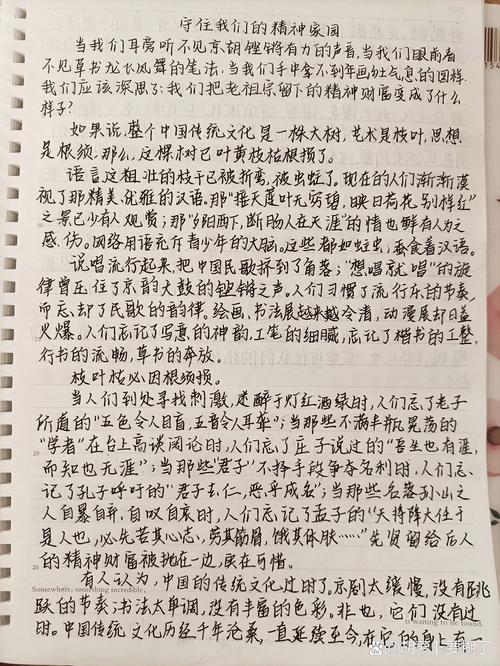 守住我们的精神家园
当我们耳旁听不见京胡铿锵有力的声音,当我们眼前看
不见草书龙飞凤舞的笔法,当我们手中拿不到年画灶気息的图样,
我们应该深思了:我们把老祖宗留下的精神财富变成了什么
样子?
如果说,整个中国传统文化是一株大树,艺术是枝叶,思想
是根须,那么,这棵树已叶黄枝枯根损了。
语言这粗壮的枝干已被折弯,被虫蛀了。现在的人们渐渐漠
视了那精美、优雅的汉语。那"接天莲叶无穷碧,映日荷花别样红"
之景已少有人观赏;那"夕阳西下,断肠人在天涯"的情也鲜有人为之
感伤。网络用语充斥青少年的大脑。这些都如蛀虫,蚕食着汉语。
说唱流行起来,把中国民歌挤到了角落;"想唱就唱"的旋
律曾压住了京韵大鼓的铿锵之声。人们习惯了流行乐的节奏,
而忘却了民歌的韵律。绘画、书法展越来越冷清,动漫展却日益
火爆。人们忘记了写意的神韵,工笔的细腻,忘记了楷书的工整,
行书的流畅,草书的奔放。
枝叶枯必因根须损。
当人们到处寻找刺激,迷醉于灯红酒绿时,人们忘了老子
所道的"五色令人目盲,五音令人耳聋";当那些不满半瓶晃荡的
"学者"在台上高谈阔论时,人们忘了庄子说过的"吾生也有涯,
20
而知也无涯";当那些"君子"不择手段争夺名利时,人们忘
记了孔子呼吁的"君子去仁,恶乎成名";当那些名落孙山之
人自暴自弃,自叹自哀时,人们忘记了孟子的"天将降大任于
是人也,必先苦其心志,劳其筋骨,饿其体肤……"先贤留给后人
25
的精神财富被抛在一边,实在可惜。
Somewhere, something incredible
有人认为,中国的传统文化过时了。京剧太缓慢,没有跳
跃的节奏;书法太单调,没有丰富的色彩。非也,它们没有过
is waiting to be found.
时。中国传统文化历经千年沧桑,一直延续至今,在它的身上有一